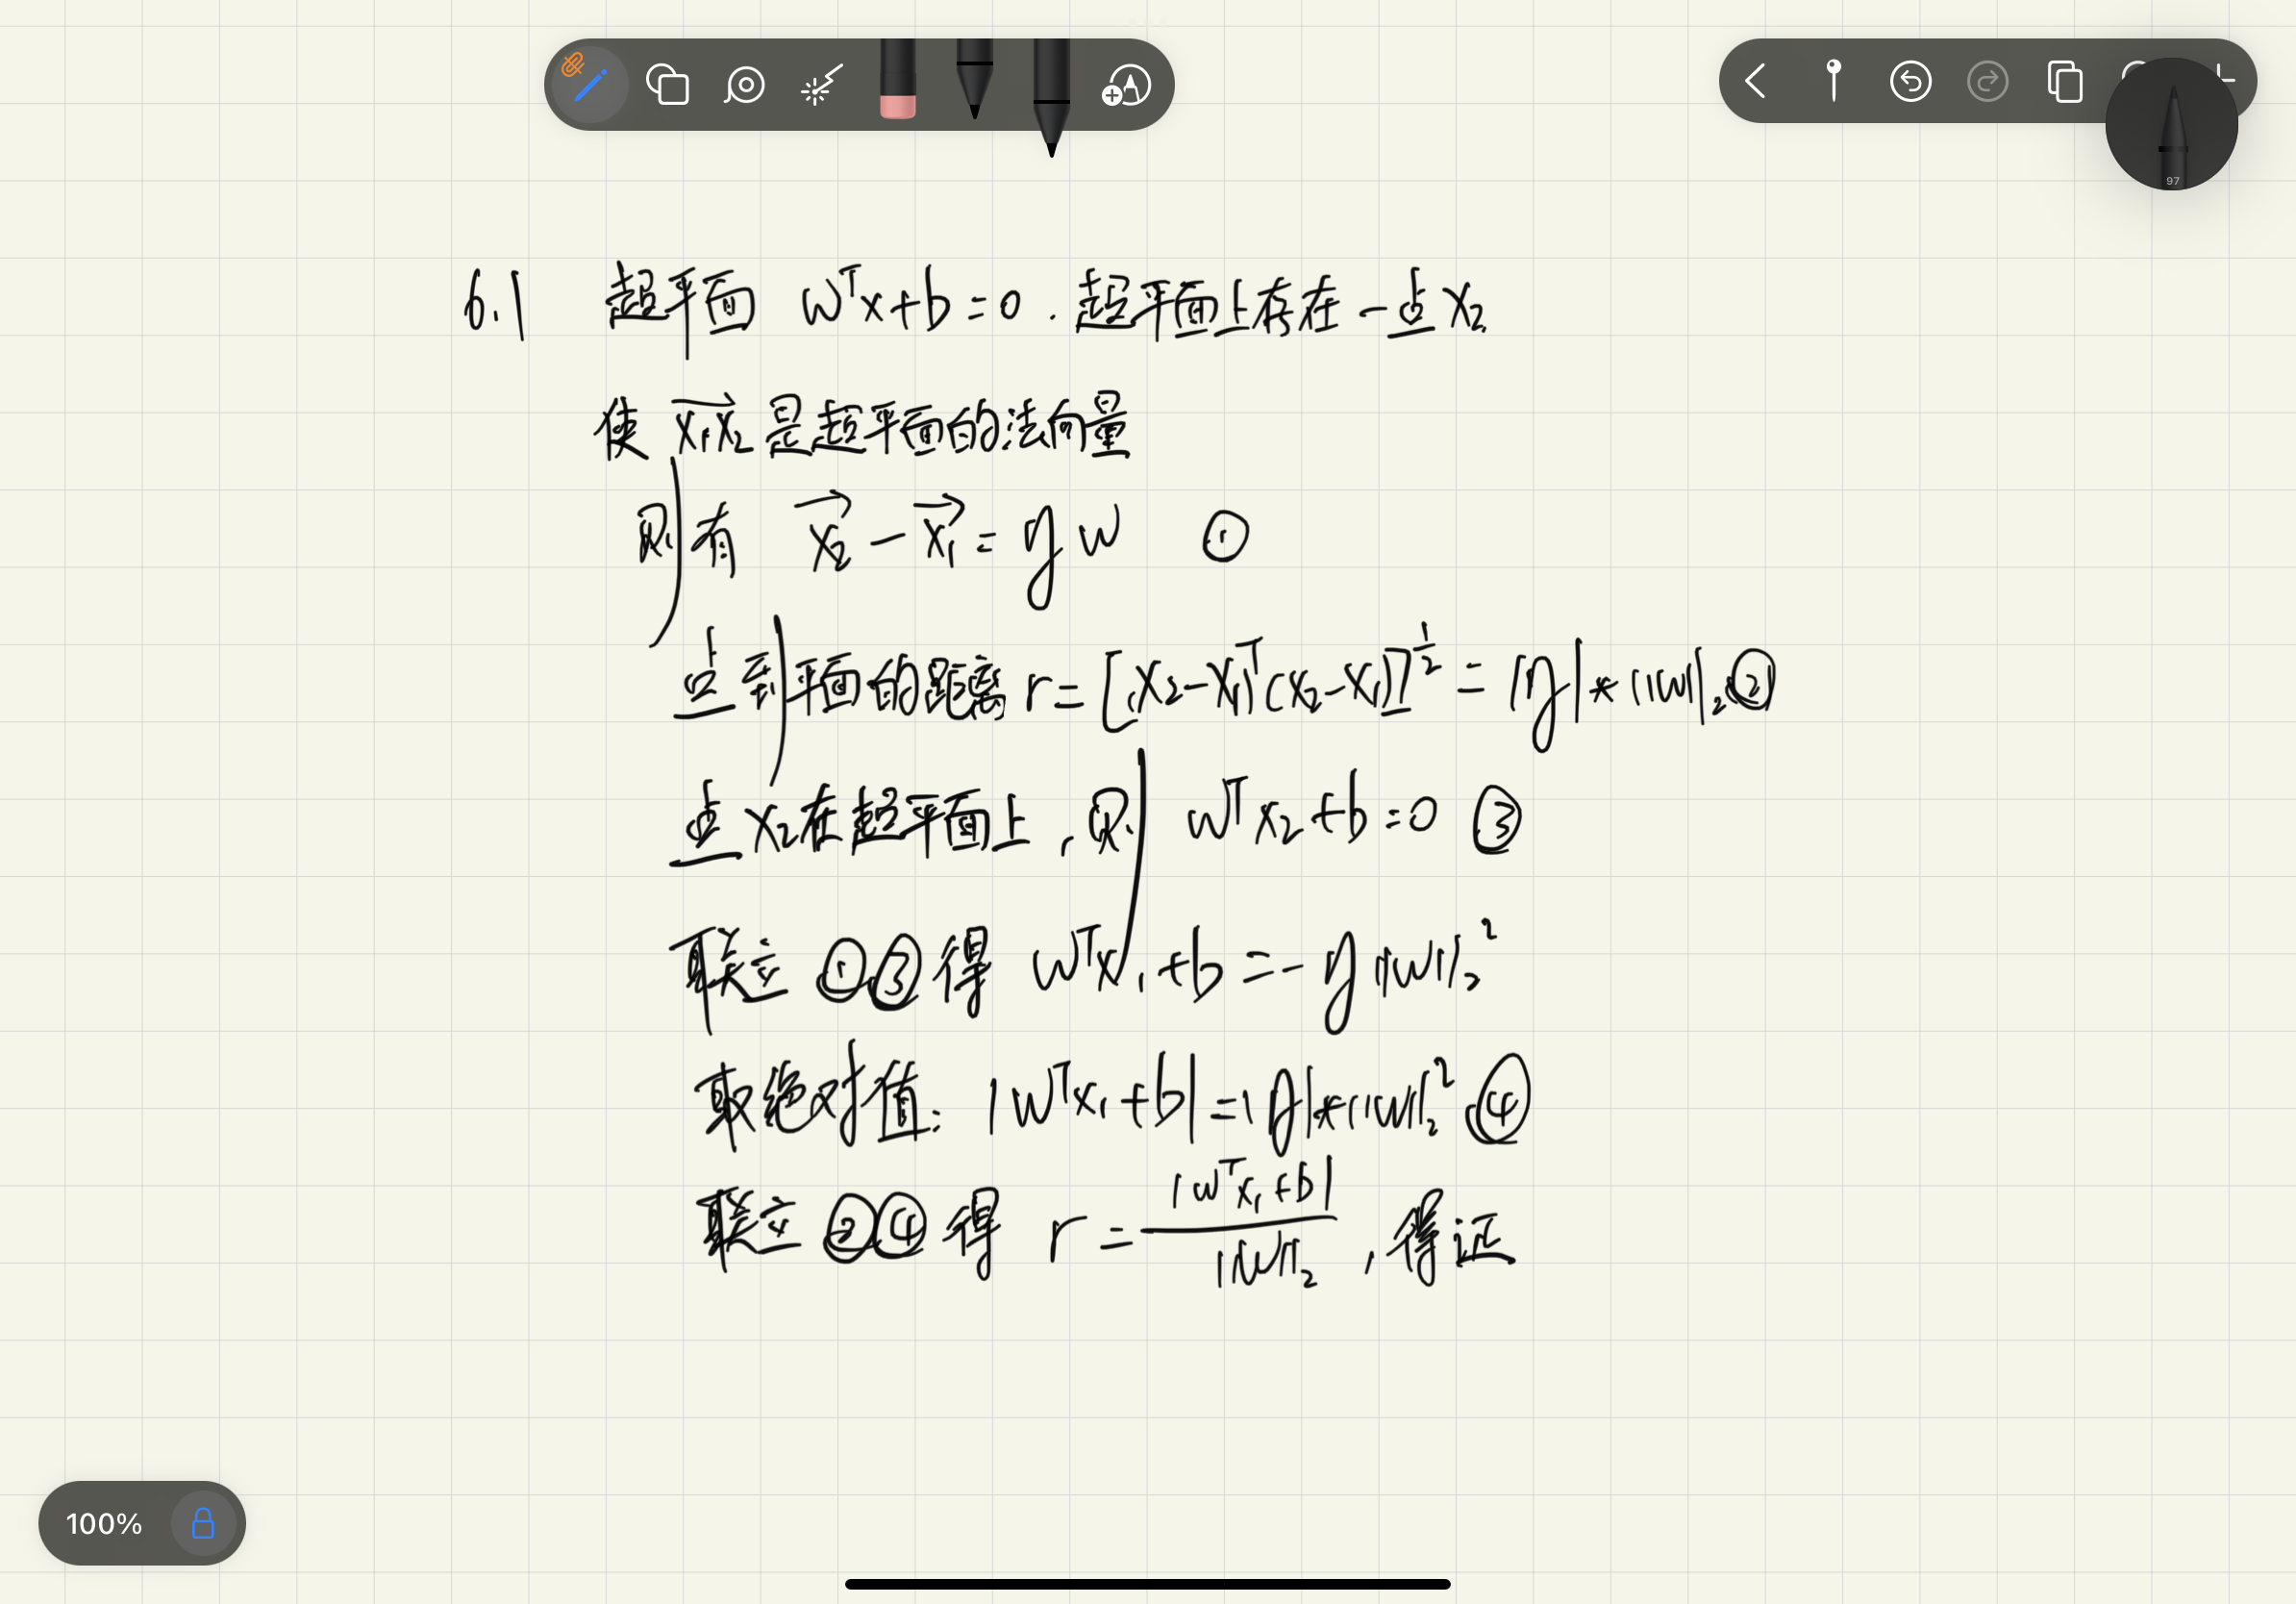 6.1 超平面 wᵀx+b=0 . 超平面上存在一点 x₂
使 x₁x₂ 是超平面的法向量
则有 x₂ - x₁ = y w ①
点到平面的距离 r = [(x₂-x₁)ᵀ(x₂-x₁)]^½ = |y| * ||w||₂ ②
点 x₂ 在超平面上 , 则 wᵀx₂+b=0 ③
联立 ①③ 得 wᵀx₁+b = -y ||w||₂²
取绝对值: |wᵀx₁+b| = |y| * ||w||₂² ④
联立 ②④ 得 r = |wᵀx₁+b| / ||w||₂ , 得证
100%
97